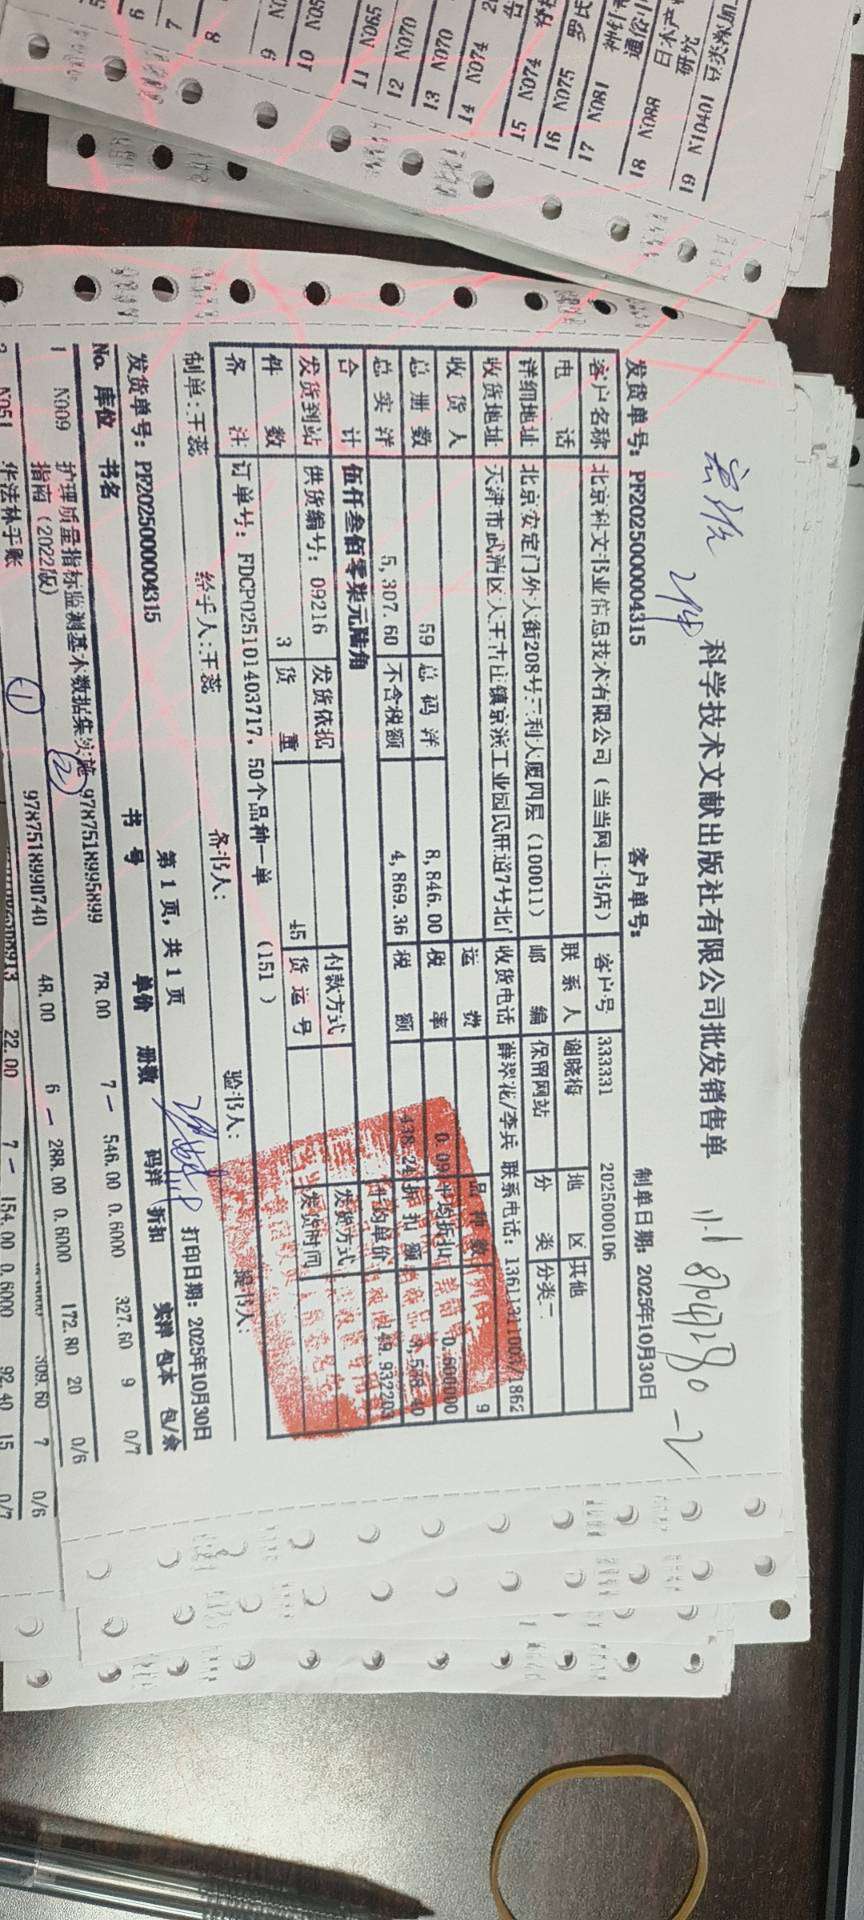 科学技术文献出版社有限公司批发销售单
发货单号：PF2025000004315 客户单号： 制单日期：2025年10月30日
客户名称 北京科文书业信息技术有限公司（当当网上书店） 客户号 333331 2025000106
电话 联系人 谢晓梅 地区 其他
详细地址 北京安定门外大街208号三利大厦四层（100011） 邮编 保留网站 分类 分类二
收货地址 天津市武清区大王古庄镇京滨工业园民旺道7号北门 收货电话 薛翠花/李兵 联系电话：13611311003/1862
收货人 运费 品种数 9
总册数 59 总码洋 8,846.00 税率 0.09 平均折扣 0.600000
总实洋 5,307.60 不含税额 4,869.36 税额 438.24 折扣额 3,538.40
合计 伍仟叁佰零柒元陆角 平均单价 149.932203
发货到站 供货编号：09216 发货依据 付款方式 发货方式
件数 3 货重 45 货运号 发货时间
备注 订单号：FDCP025101403717，50个品种一单 （151 ）
制单：王蕊 经手人：王蕊 备书人： 验书人： 提书人：
第 1 页，共 1 页 打印日期：2025年10月30日
发货单号：PF2025000004315
No. 库位 书名 书号 单价 册数 码洋 折扣 实洋 包本 包/余
1 N009 护理质量指标监测基本数据集实施 9787518995899 78.00 7 546.00 0.6000 327.60 9 0/7
指南（2022版）
②
①
9787518990740 48.00 6 288.00 0.6000 172.80 20 0/6
309.60 7 0/6
22.00 7 154.00 0.6000 92.40 15 0/7
2 N051
6
7
8
9
10
11 N065
12 N070
13 N070
14 N074
15 N074
16 N075
17 N081
18 N088
19 N10401
研究